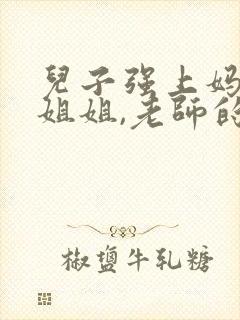 兒子强上妈
姐姐,老師的
椒鹽牛乳糖